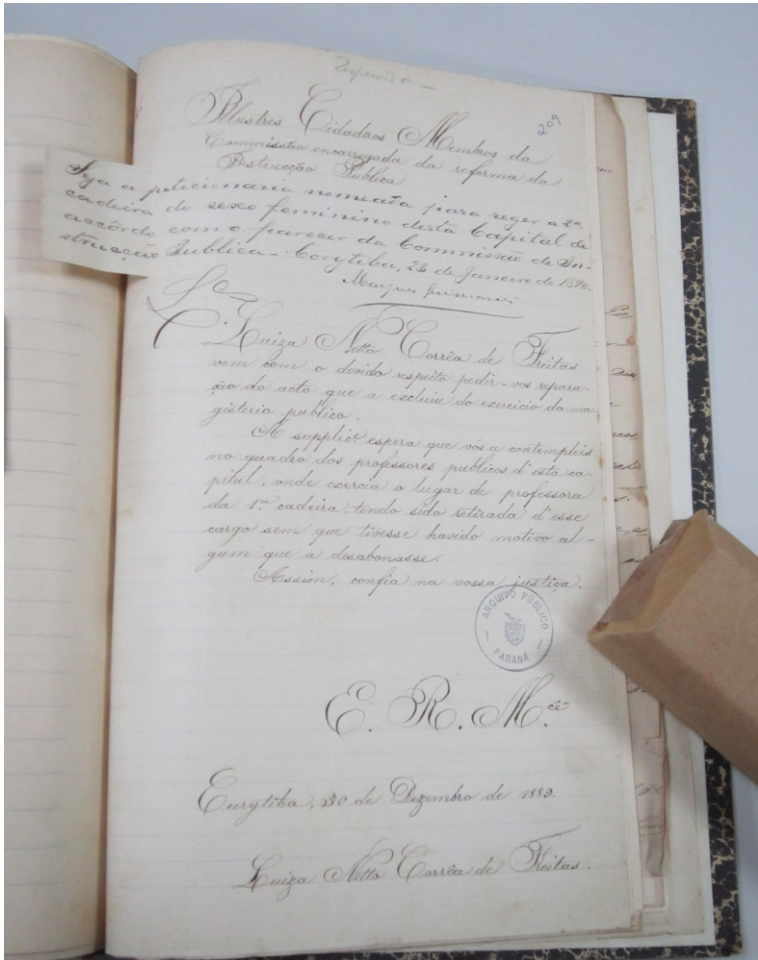 209
Illustres Cidadãos Membros da
Commissão encarregada da reforma da
Instrucção Publica
Seja a peticionaria nomeada para reger a 2ª
cadeira do sexo feminino desta Capital de
accôrdo com o parecer da Commissão de In-
strucção Publica - Corytiba, 28 de Janeiro de 1890.
Marques Guimarães
Luiza Netto Corrêa de Freitas
vem com o devido respeito pedir-vos repara-
ção do acto que a excluiu do exercicio do ma-
gisterio publico.
A supplicᵉ espera que vós a contempleis
no quadro dos professores publicos d'esta ca-
pital, onde exercia o lugar de professora
da 1ª cadeira, tendo sido retirada d'esse
cargo sem que tivesse havido motivo al-
gum que a desabonasse.
Assim, confia na vossa justiça.
ARQUIVO PÚBLICO
PARANÁ
E. R. M.cê
Curytiba, 30 de Dezembro de 1889.
Luiza Netto Corrêa de Freitas.